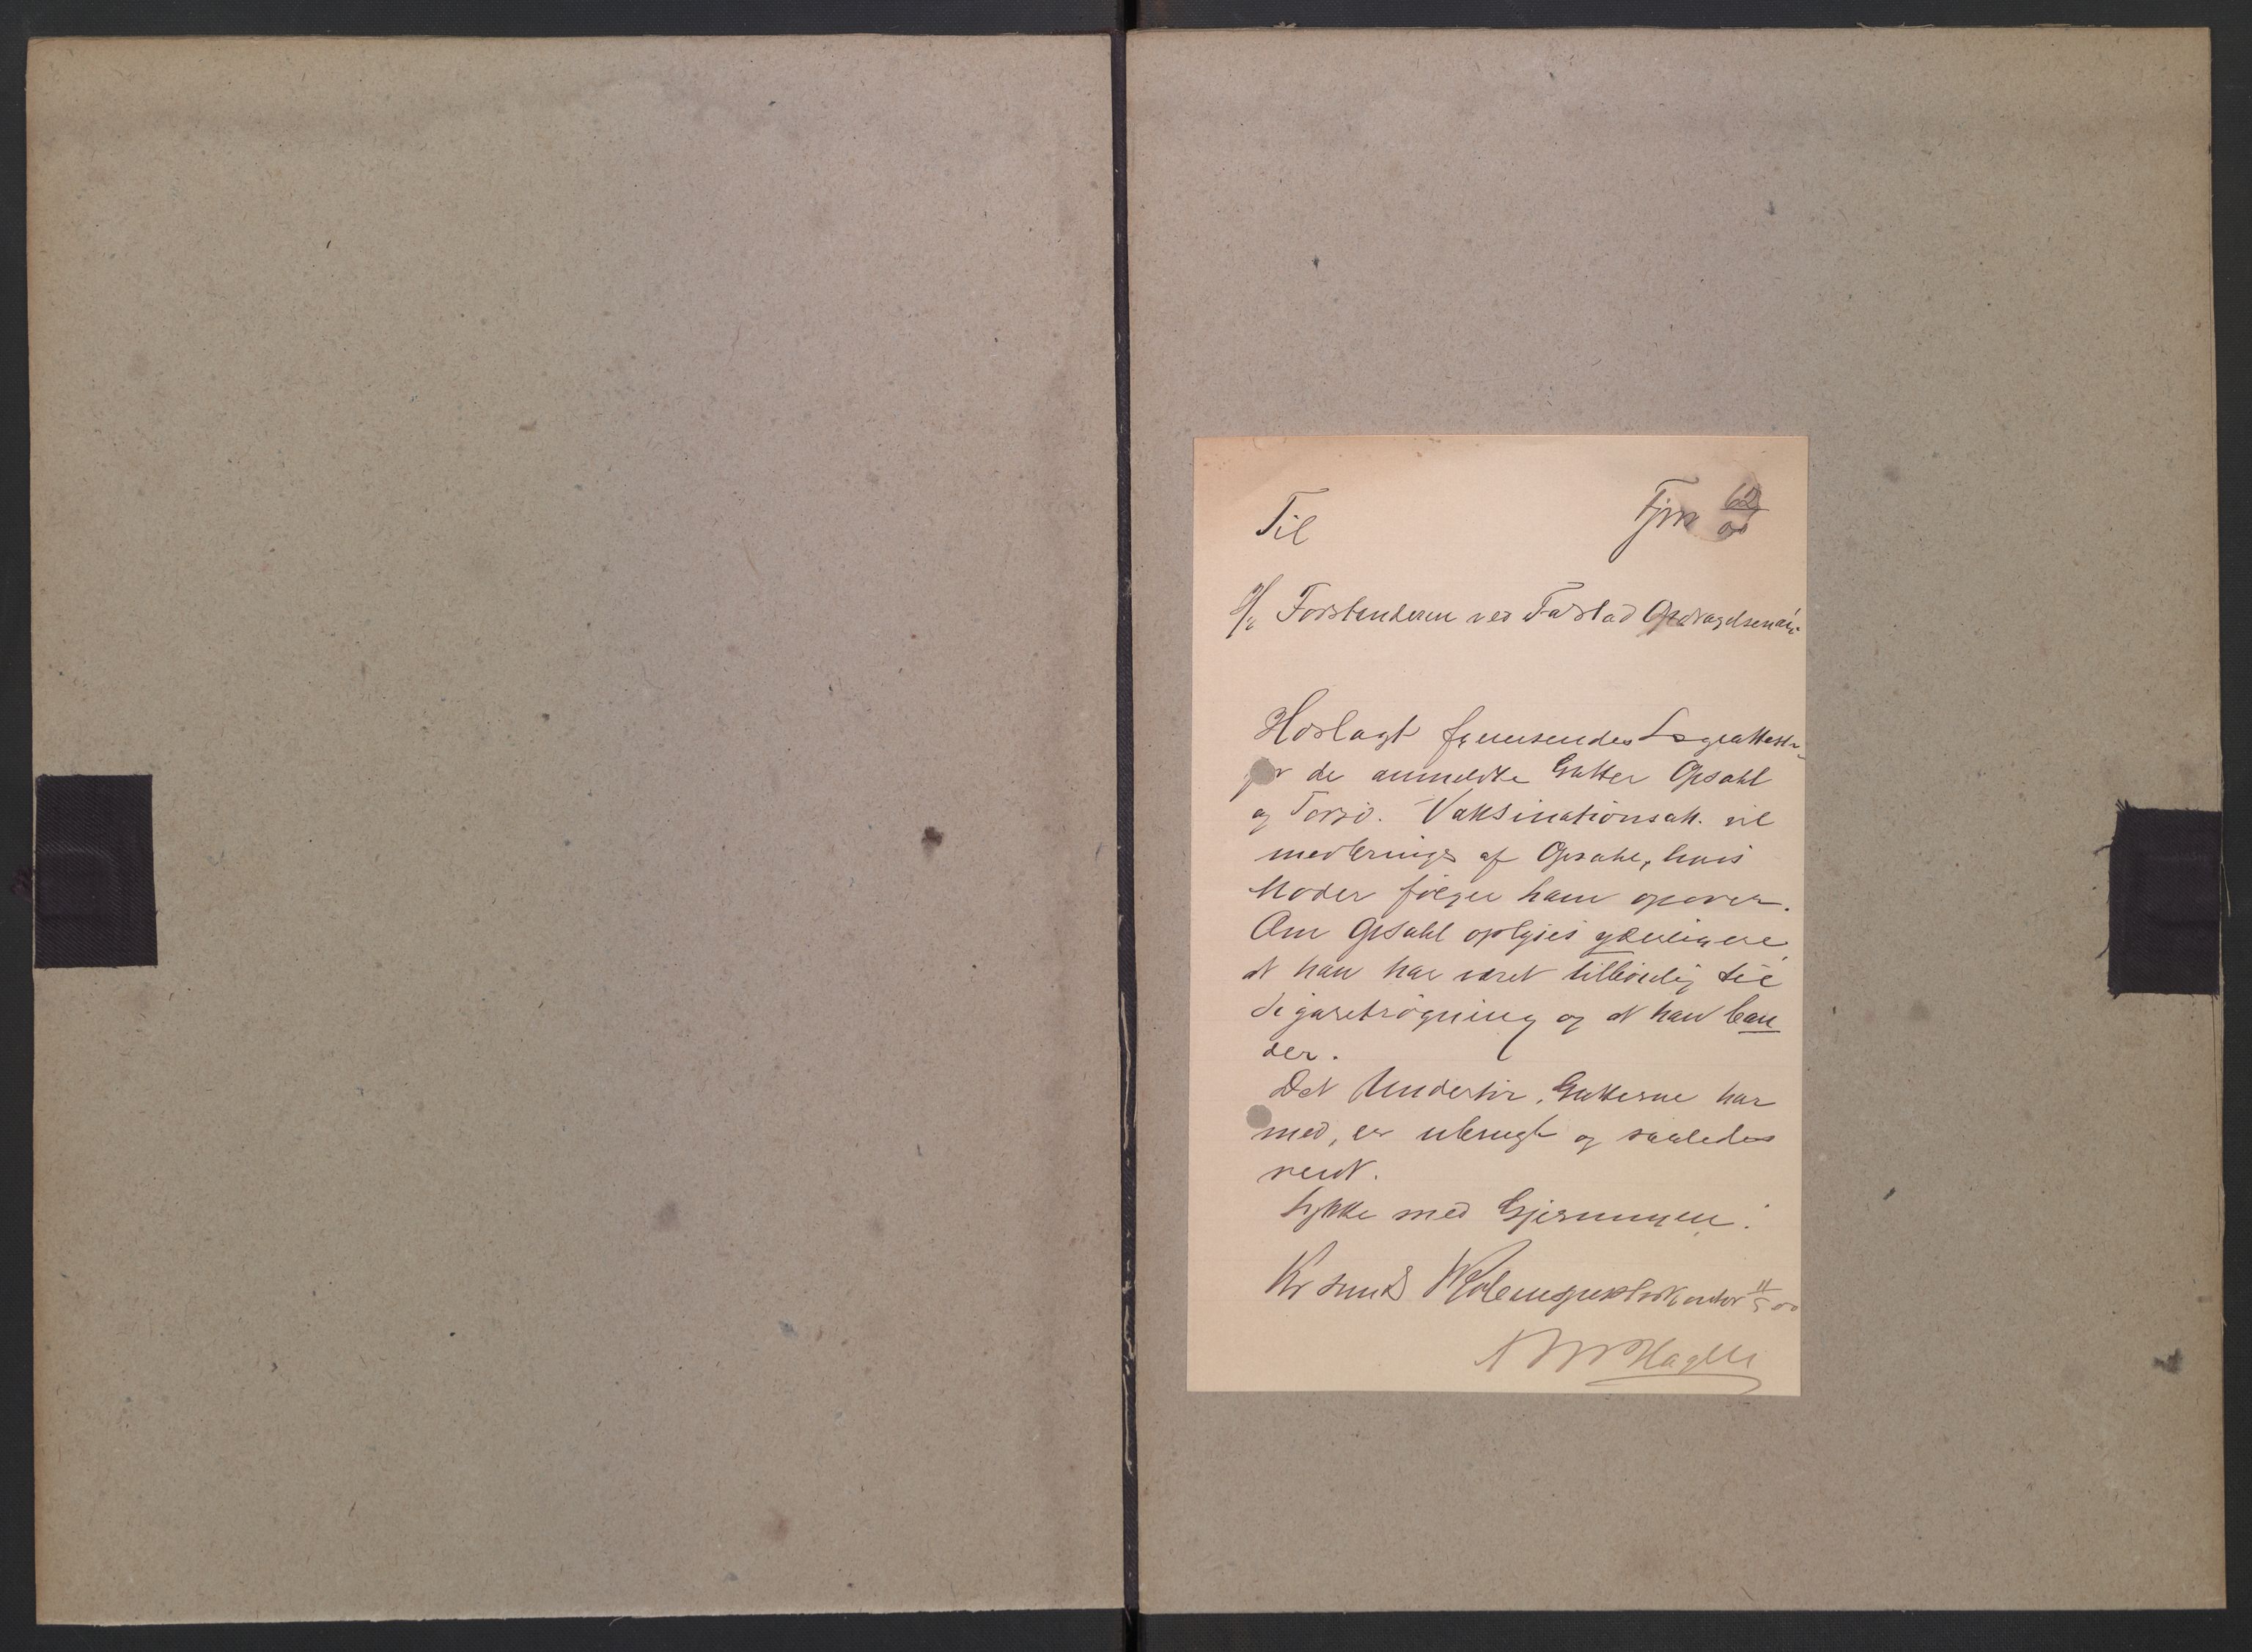 Til
Fjm 62/00
H/r Forstanderen ved Falstad Opdragelsesan.
Hoslagt fremsendes Lægeattester
for de anmeldte Gutter Opsahl
og Torsø. Vaksinationsatt. vil
medbringes af Opsahl, hvis
Moder følger ham opover.
Om Opsahl oplyses yderligere
at han har været tilbøielig til
Sigaretrøgning og at han ban
der.
Det Undertøi, Gutterne har
med, er ubrugt og saaledes
rent.
Lykke med Gjerningen!
Kr sunds Skoleinspektørkontor 11/5 00